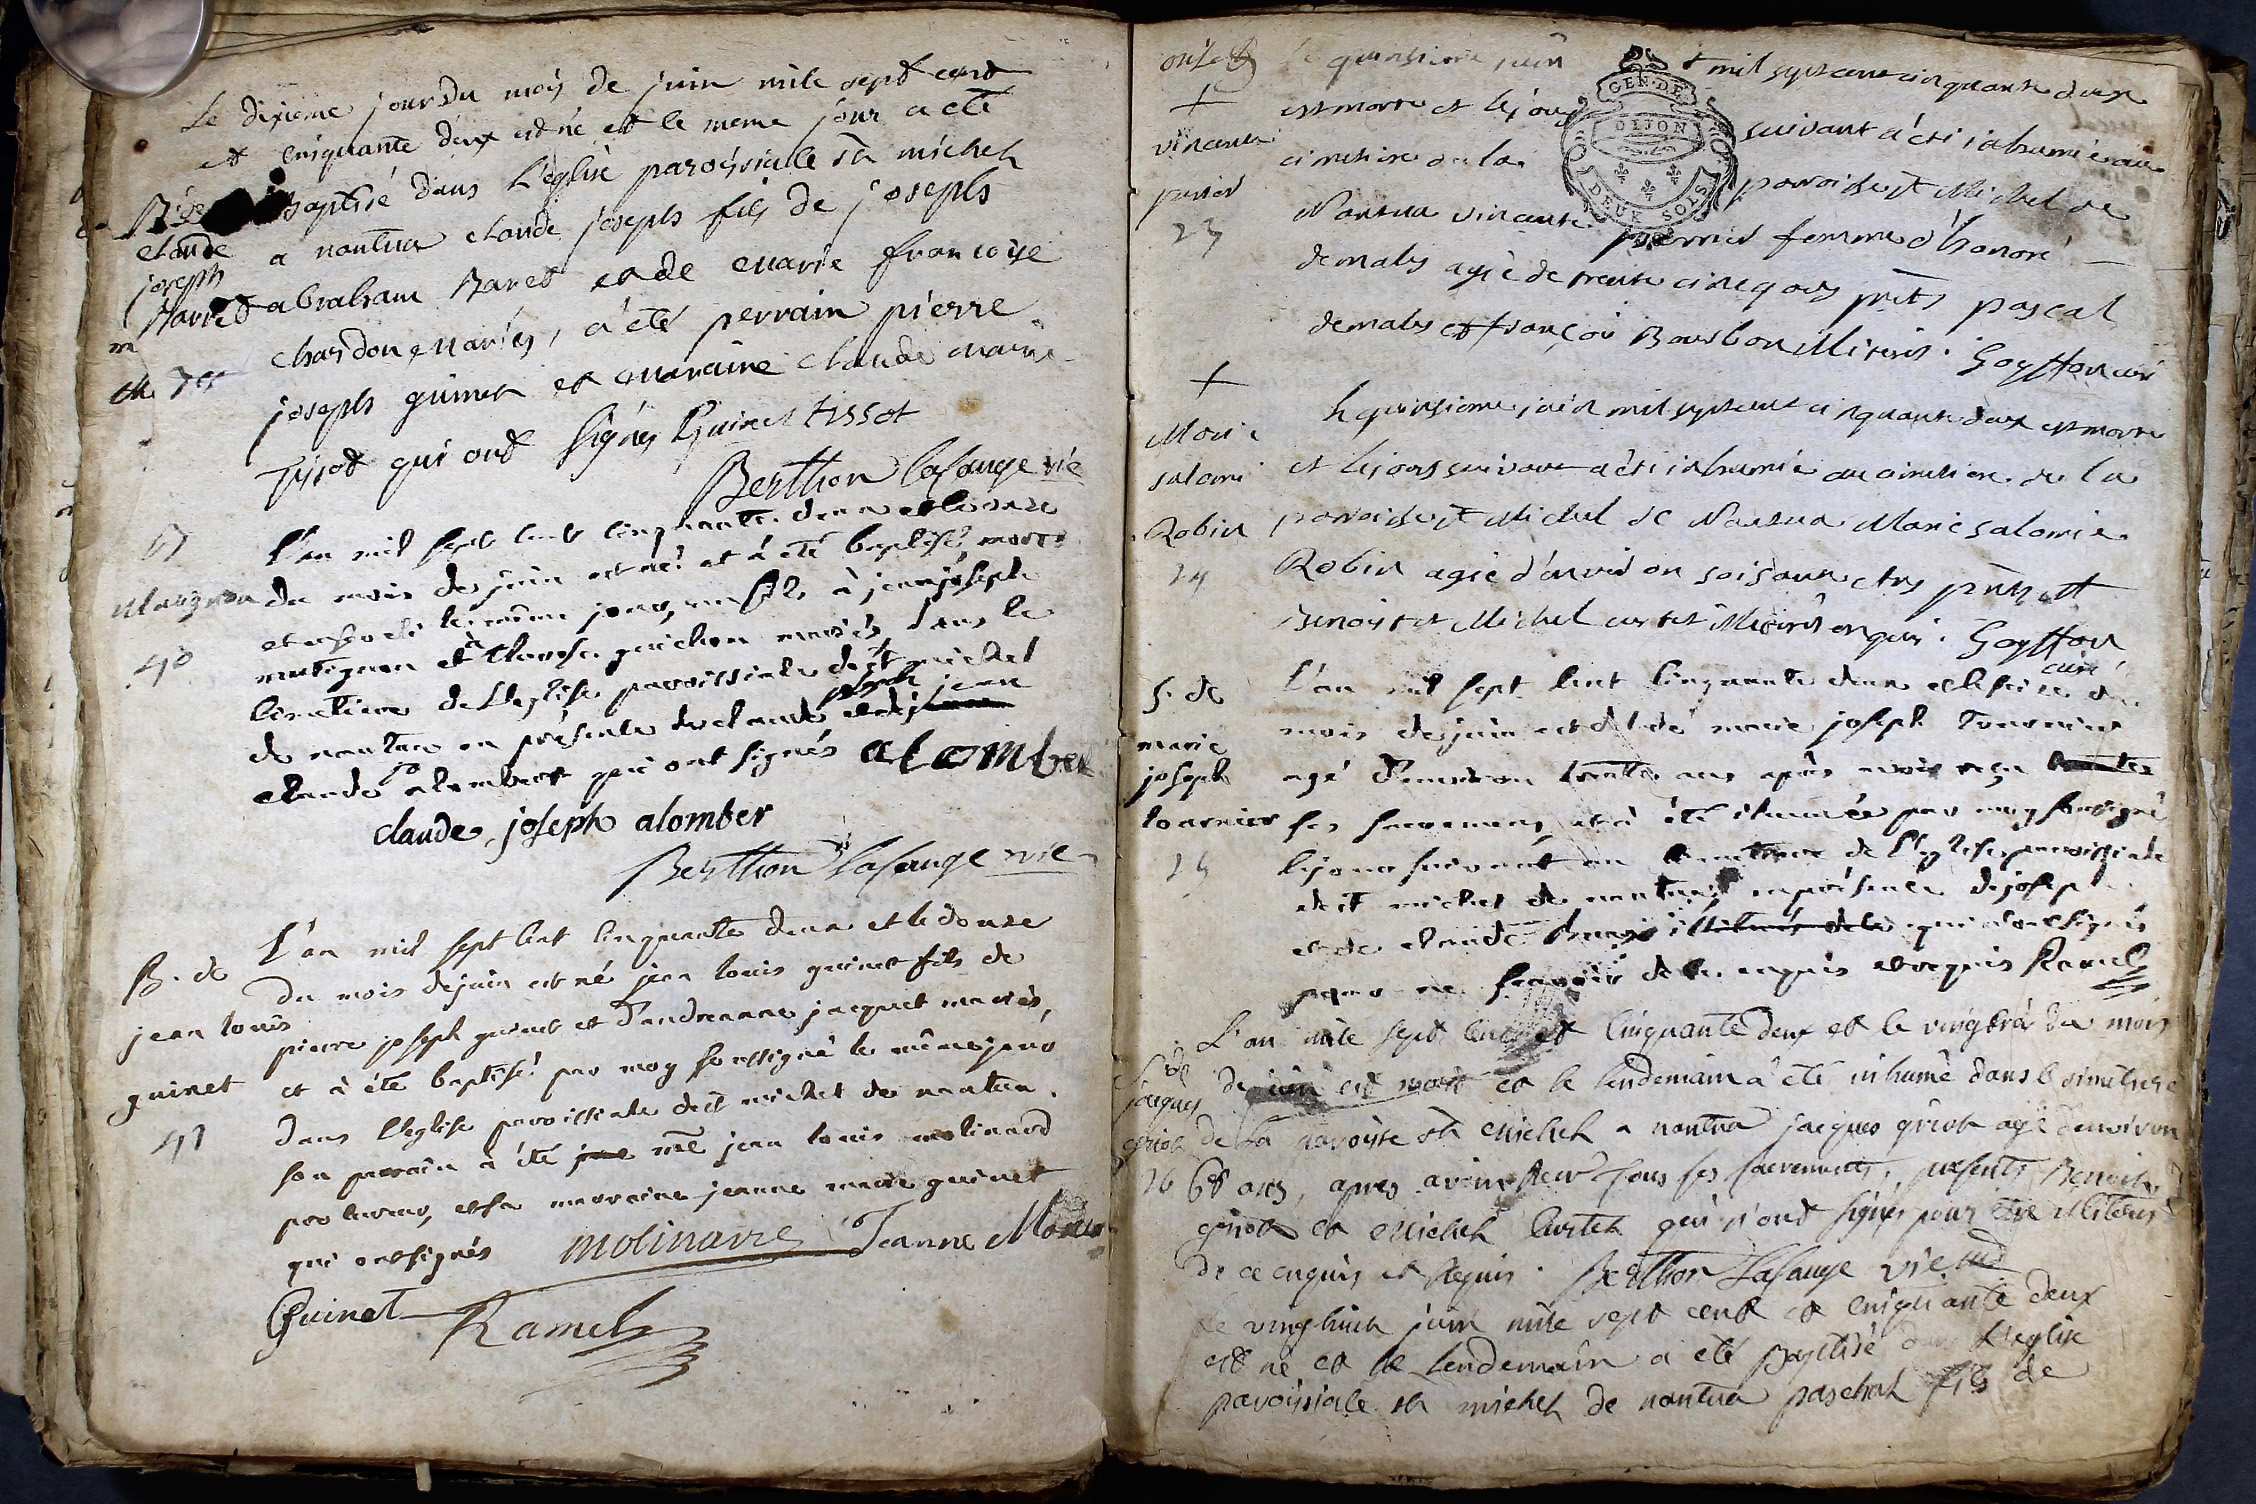 Le dixieme jour du mois de juin mile sept cent
et cinquante deux est né et le meme jour a été
baptisé dans L'eglise paroissiale st michel
a nantua claude joseph fils de joseph
abraham Barret et de marie francoise
chardon mariés, a été perrain pierre
joseph guinet et maraine claude marie
Tissot qui ont signés Guinet tissot
Berthon lasauge vic
claude
joseph
Barret
L'an mil sept cent cinquante deux et le onze
du mois de juin est né et à été baptisé, mort
et enseveli le même jour, un fils à jean joseph
matignon et à guichon mariés, dans le
cimetiere de L'eglise paroissiale de st michel
de nantua en présence de claude joseph et de jean
claude alombert qui ont signés alomber
claude joseph alomber
Berthon lasauge vic
40
B. de
jean louis
guinet
41
L'an mil sept cent cinquante deux et le douze
du mois de juin est né jean louis guinet fils de
pierre joseph guinet et d'andreanne jacquet mariés,
et à été baptisé par moy soussigné le même jour
dans l'eglise paroissiale de st michel de nantua.
son parrain à été me jean louis molinard
procureur, et sa marraine jeanne marie guinet
qui ont signés molinard Jeanne Marie
Guinet Ramel
GEN. DE
DIJON
DEUX SOLS
+
vincente
perrier
23
Le quinsieme juin mil sept cent cinquante deux
est morte et le jour suivant a été inhumée au
cimetiere de la paroisse st Michel de
Nantua vincente perrier femme d'honoré
demales agée de trente cinq ans prets pascal
demales et françois Bourbon illiterés. Goyffon curé
+
Marie
salomé
Robin
24
le quinsieme juin mil sept cent cinquante deux est morte
et le jour suivant a été inhumée au cimetiere de la
paroisse st Michel de Nantua Marie salomée
Robin agée d'environ soisante ans prets
Benoist et Michel curtet illiterés enquis. Goyffon
curé
S. de
marie
joseph
tournier
25
L'an mil sept cent cinquante deux et le seize du
mois de juin est décédé marie joseph Tournier
agé d'environ trente ans après avoir reçu
ses sacremens, et à été inhumée par moy soussigné
le jour suivant au cimetiere de l'eglise paroissiale
de st michel de nantua en présence de joseph
et de claude qui n'ont signés
pour ne sçavoir de ce enquis et requis Ramel
S. de
jacques
griot
26
L'an mile sept cent et cinquante deux et le vingt du mois
de juin est mort et le lendemain a été inhumé dans le simetiere
de la paroisse st michel a nantua jacques griot agé d'environ
68 ans, apres avoir receu tous ses sacrements, presents Benoit
griot et michel Curtet qui n'ont signés pour être illiterés
de ce enquis et requis. Berthon Lasauge vic
le vingt huit juin mile sept cent et cinquante deux
est né et le lendemain a été Baptisé dans L'eglise
paroissiale st michel de nantua paschal fils de